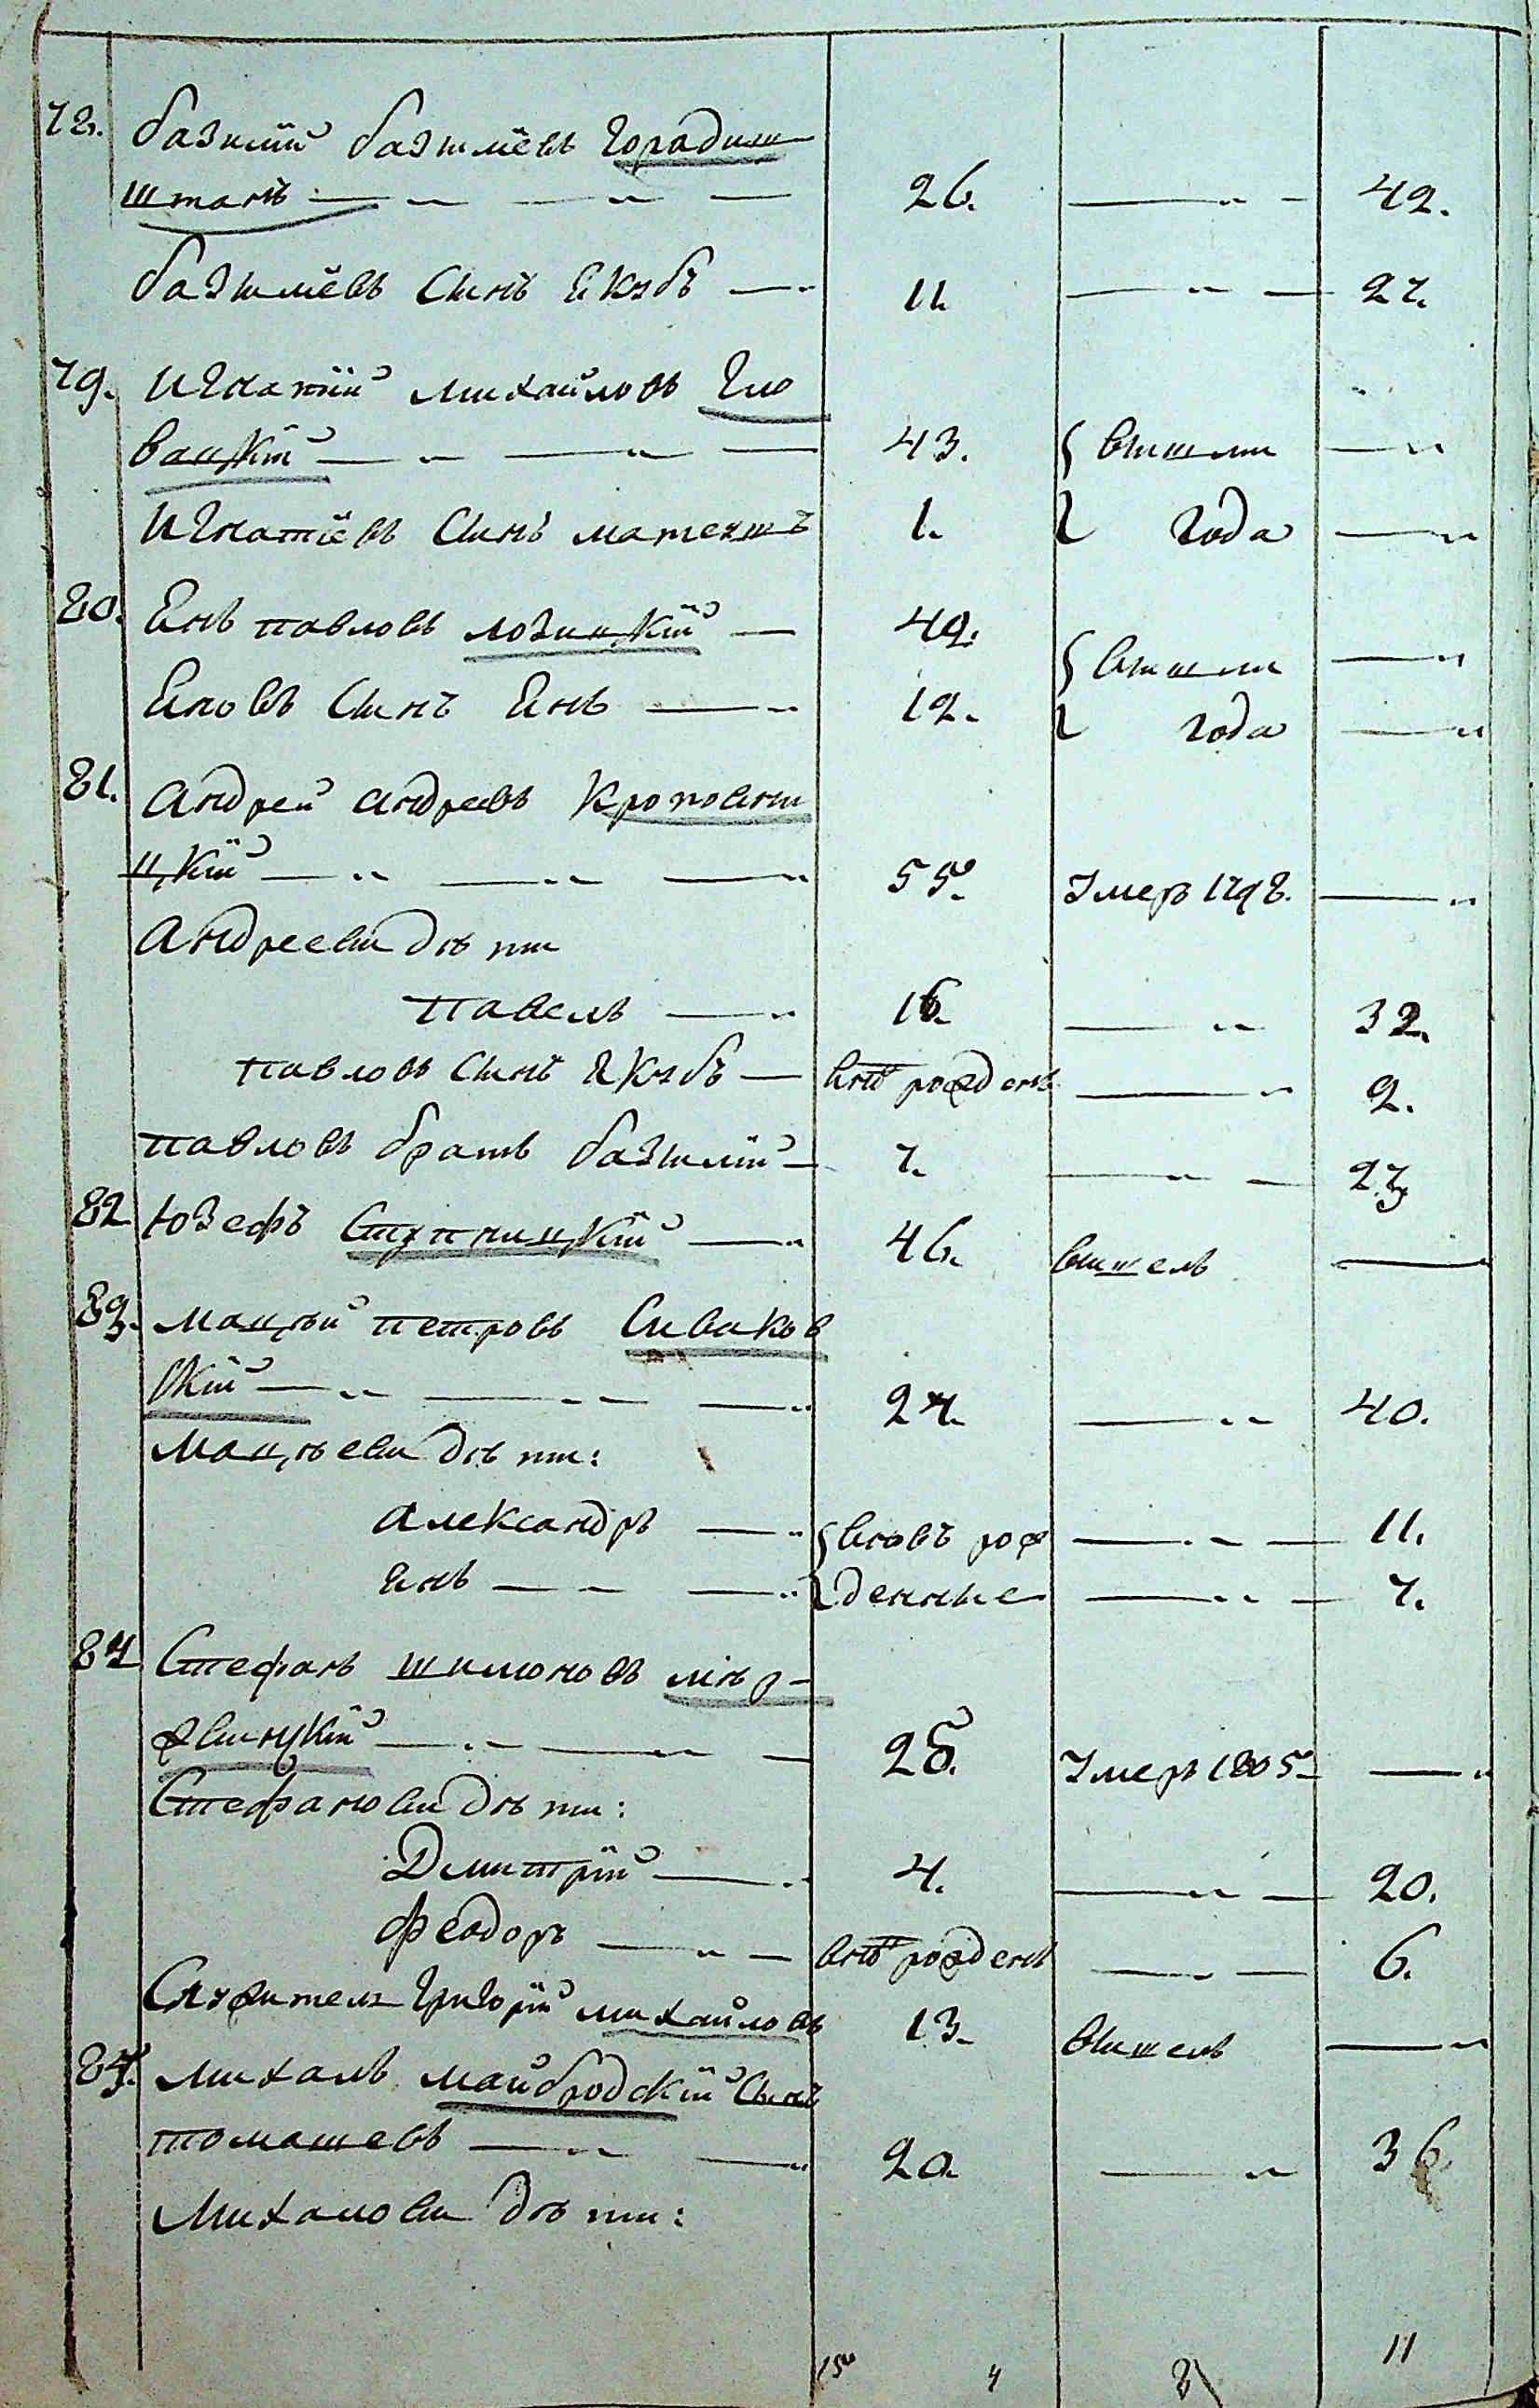 78. базилій базилїевъ Городиш
штанъ 26. 42.
базилїевъ Сынъ Якубъ 11. 27.
79. Игнатїй михайловъ Гло
вацкїй 43. вышли
Игнатїевъ Сынъ матеушъ 1. года
80. Янъ павловъ лозицкїй 42. вышли
Яновъ Сынъ Янъ 12. года
81. Андрей андреевъ Кроповни
цкїй 55. Умеръ 1798.
Андреевы дѣти
павелъ 16. 32.
павловъ Сынъ Якубъ внѡ рожденъ 2.
павловъ братъ базилїй 7. 23
82 Юзефъ Ступницкїй 46. вышелъ
83. мацѣй петровъ Сиваков
скїй 24. 40.
мацѣевы дѣти:
александръ вновъ рож 11.
янъ денные 7.
84 Стефанъ шимоновъ
25. Умеръ 1805
Стефановы дѣти:
Дмитрїй 4. 20.
феодоръ внѡ рожденъ 6.
Служитель Григорїй михайловъ 13. вышелъ
85. михалъ майбродскїй Сынъ
томашевъ 20. 36
Михаловы дѣти:
15 4 8 11